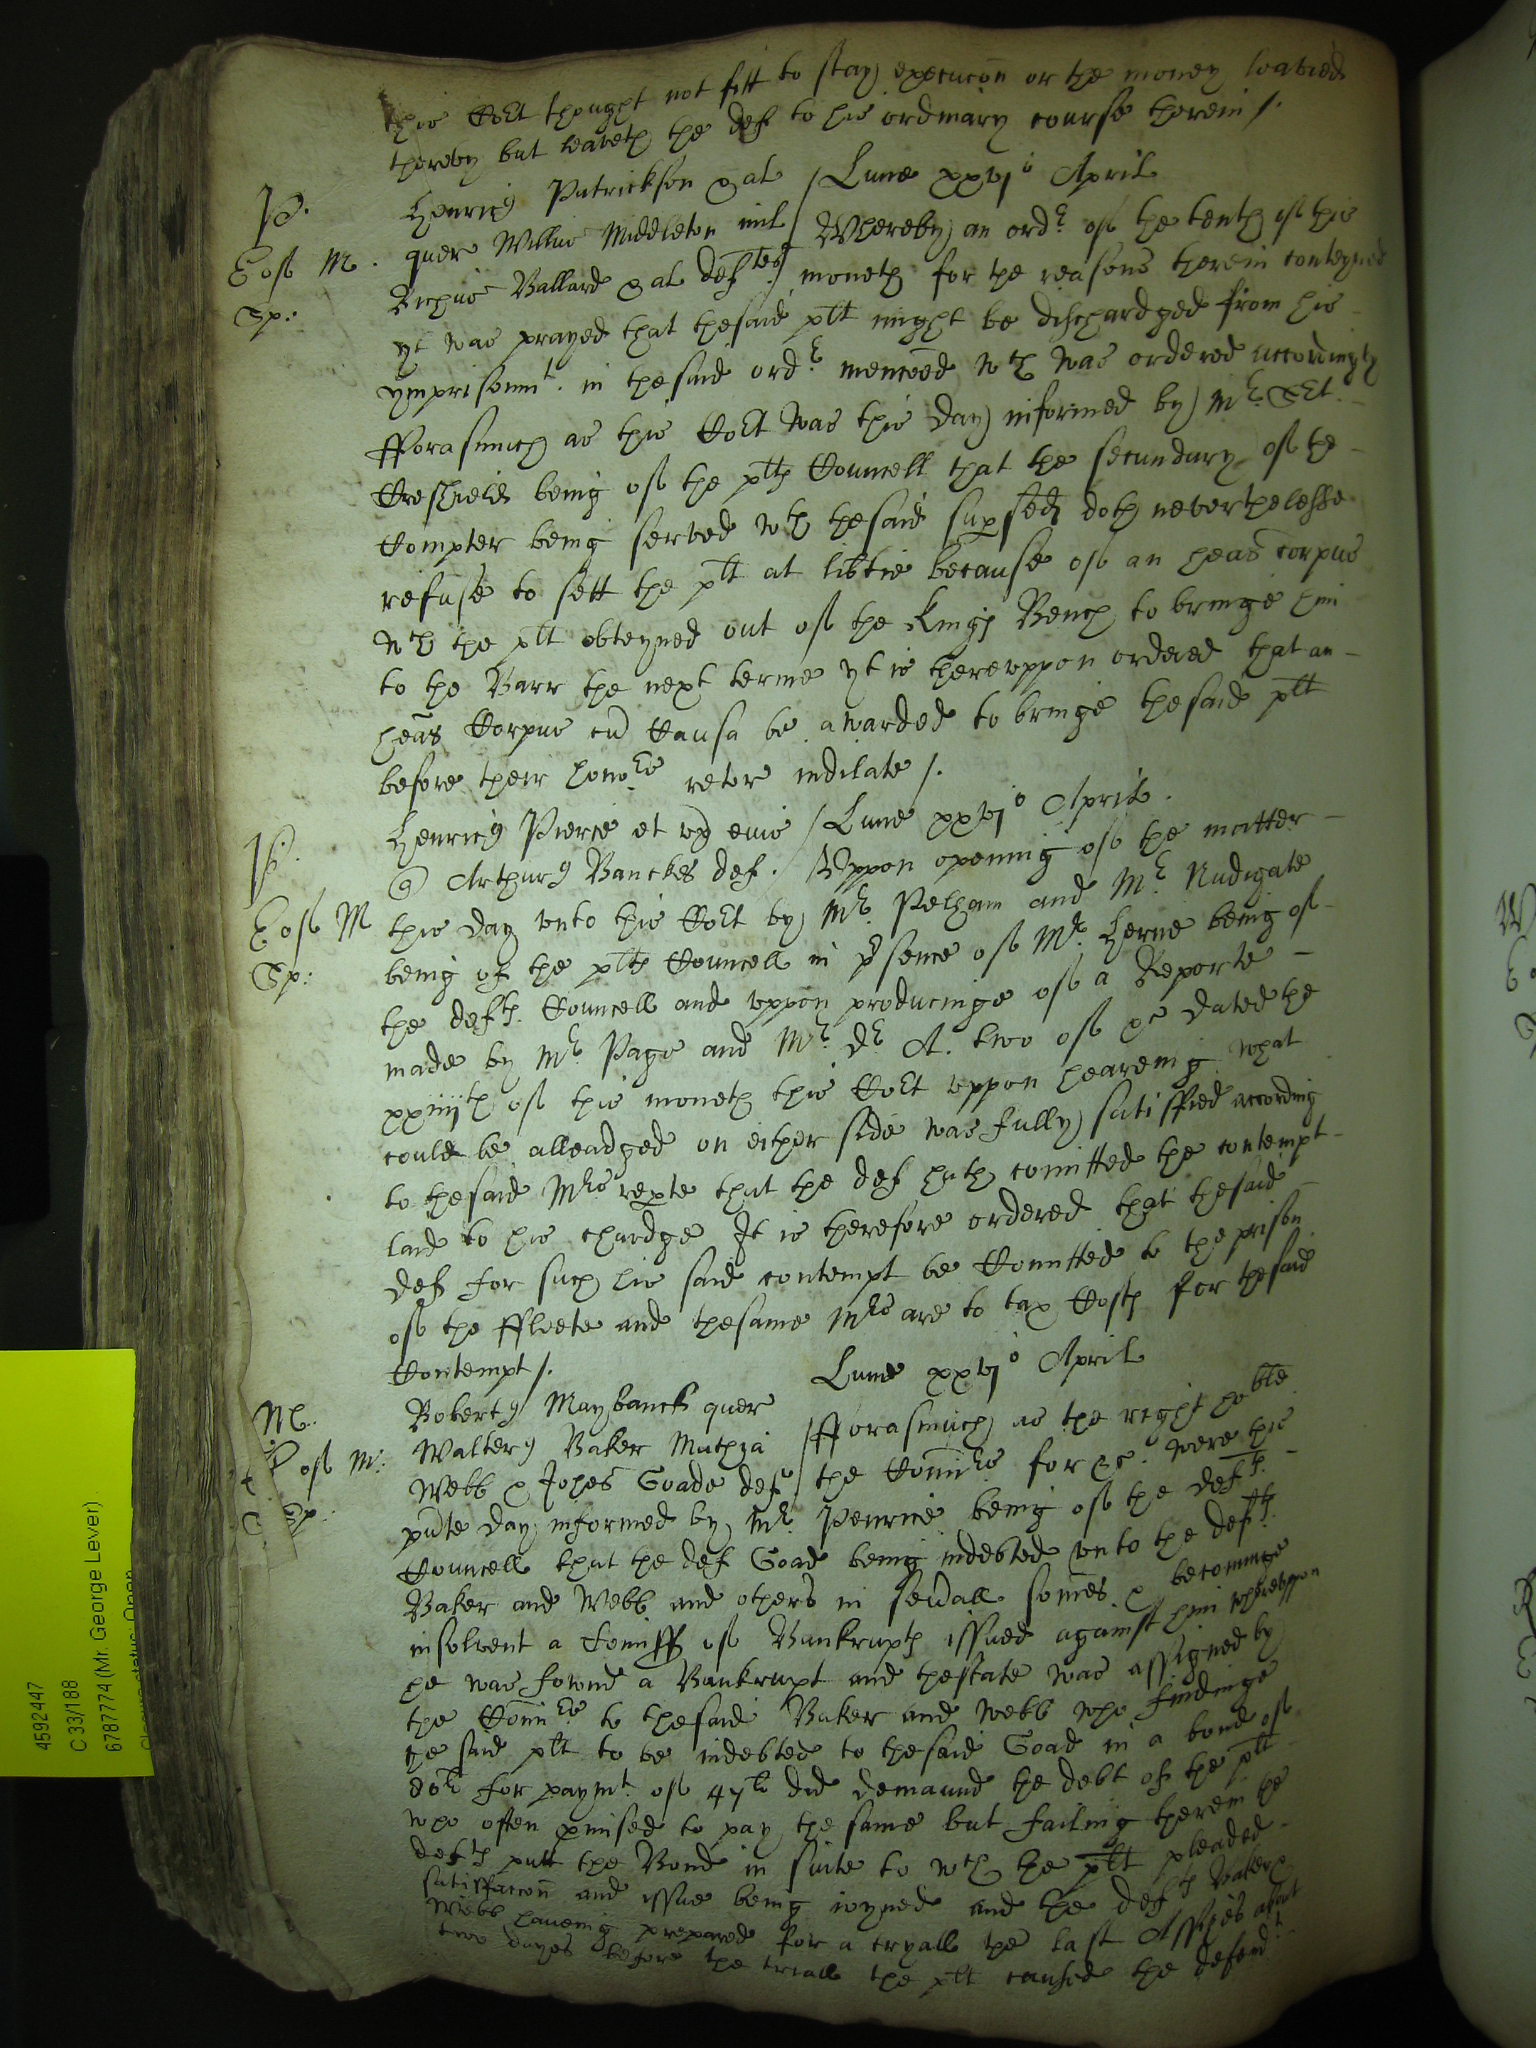 this Co:rt thought not fitt to stay execucon or the money leavied
thereby but leaveth the def to his ordinary course therein /.
P.
Henric9 Patrickson & al / Lune xxvjo April
E of M. quer Willus Middleton mil / Whereby an ordr of the tenth of this
Sp: Richus Ballard & al deftes / moneth for the reasons therein conteyned
yt was prayed that thesaid plt might be dischardged from his
ymprisonmt. in thesaid ordr menconed wch was ordered accordingly
fforasmuch as this Cort was this day informed by Mr. Srt.
Creshfield being of the plts Councell that the secundary of the
Compter being served wth thesaid supsed doth neverthelesse
refuse to sett the plt at libtie because of an heas corpus
wch the plt obteyned out of the Kings Bench to bringe him
to the Barr the next terme yt is thereuppon ordered that an
heas Corpus cu Causa be awarded to bringe thesaid plt
before their honors retor indilate /.
P.
Henric9 Pierce et ux eius / Lune xxvjo April.
Arthur9 Banckes def. / Uppon opening of the matter
E of M this day vnto this Cort by Mr. Pelham and Mr. Nudigate
Sp: being of the plts Councell in psence of Mr. Herne being of
the defts. Councell and vppon producinge of a Reporte
made by Mr. Page and Mr. Dr A. two of &c dated the
xxiiijth of this moneth this Cort vppon heareing what
could be alleadged on either side was fully satisfied according
to thesaid Mrs repte that the def hath comitted the contempt
laid to his chardge It is therefore ordered that thesaid
def for such his said contempt be Comitted to the prison
of the ffleete and thesame Mrs are to tax Costs for thesaid
Contempt /.
Lune xxvjo April
M.
Robert9 Maybanck quer
E of M: Walter9 Baker Mathia / fforasmuch as the right hoble
Sp: Webb & Johes Goade def / the Comirs for &c. were this
pnte day informed by Mr. Penrice being of the defts.
Councell that the def Goad being indebted vnto the defts.
Baker and Webb and others in sevall somes & becominge
insolvent a Comiss of Bankrupts issued against him whereuppon
he was fownd a Bankrupt and thestate was assigned by
the Comirs to thesaid Baker and Webb who findinge
the said plt to be indebted to thesaid Goad in a bond of
80li for paymt. of 47li did demaund the debt of the plt
who often pmised to pay the same but failing therein the
defts putt the Bond in suite to wch the plt pleaded
satisfaccon and issue being ioyned and the defts Baker &
Webb haueing prepared for a tryall the last Assizes about
two dayes before the triall the plt caused the defend.t
4592447
C 33/188
6787774 (Mr. George Lever)
Closure status: Open